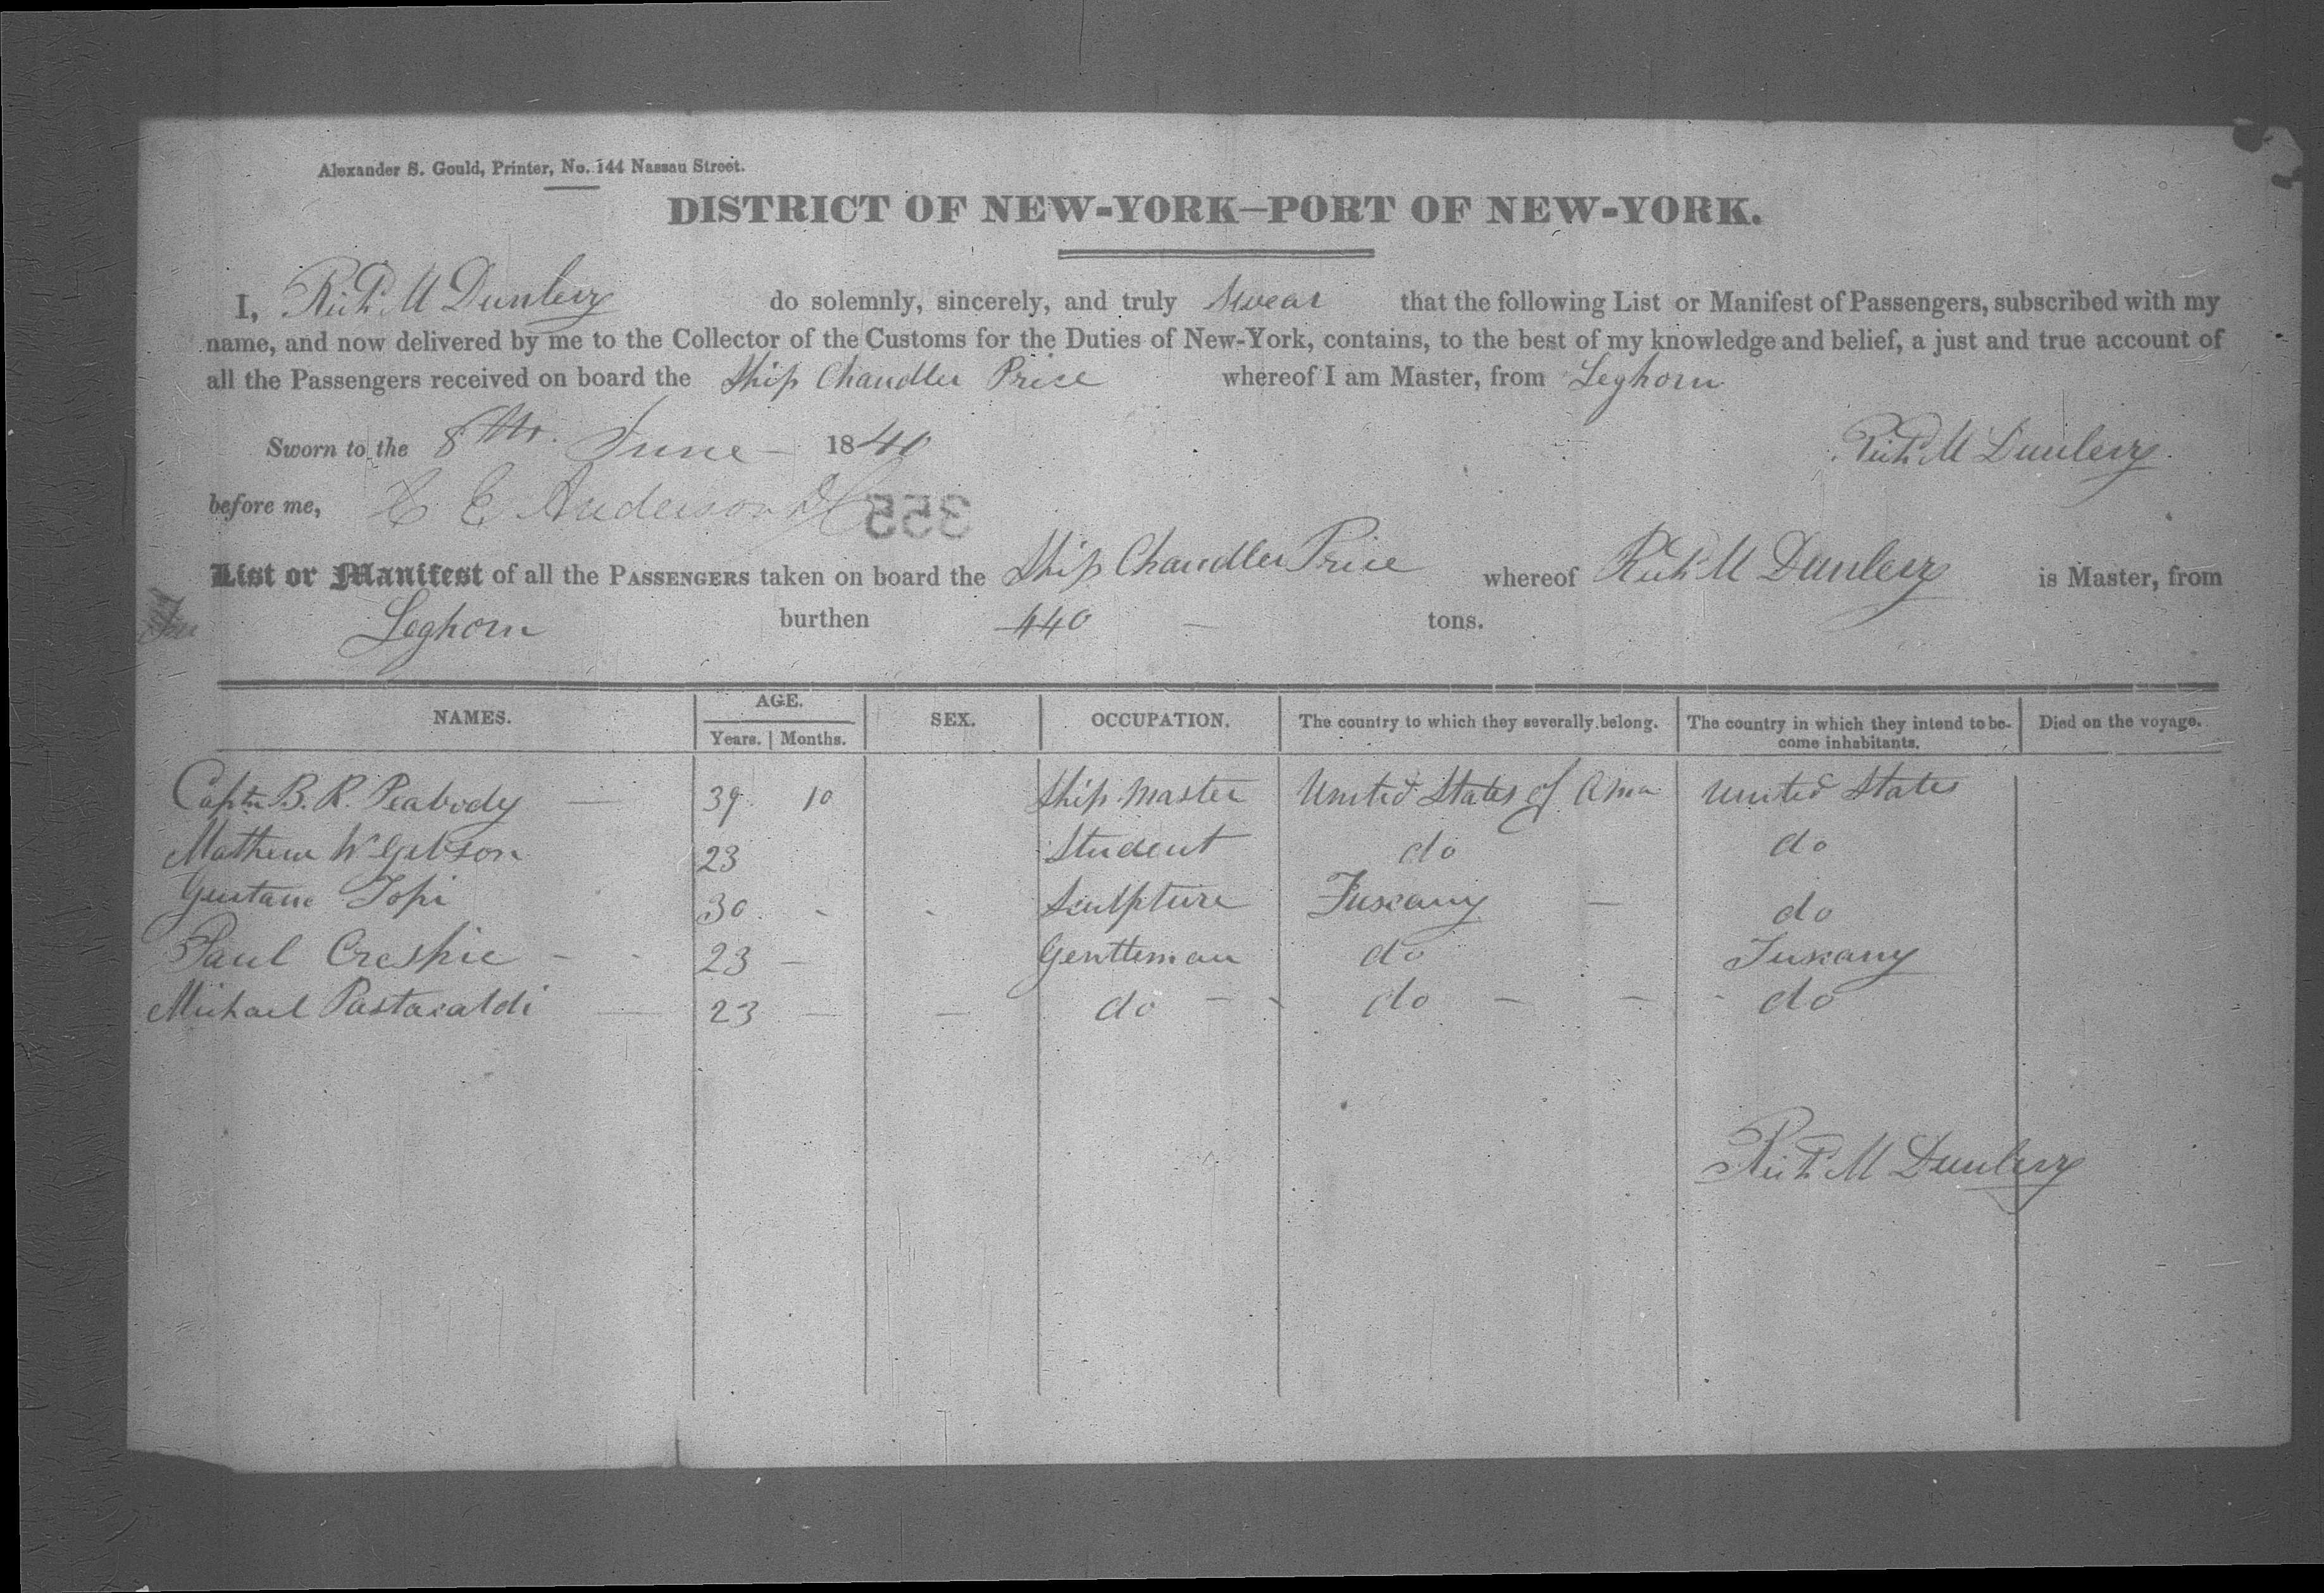 Alexander S. Gould, Printer, No. 144 Nassau Street.
DISTRICT OF NEW-YORK—PORT OF NEW-YORK.
I, Richd. M Dunlevy do solemnly, sincerely, and truly swear that the following List or Manifest of Passengers, subscribed with my
name, and now delivered by me to the Collector of the Customs for the Duties of New-York, contains, to the best of my knowledge and belief, a just and true account of
all the Passengers received on board the Ship Chandler Price whereof I am Master, from Leghorn
Sworn to the 8th. June 1840 Richd. M Dunlevy
before me, Anderson 355
List or Manifest of all the PASSENGERS taken on board the Ship Chandler Price whereof Richd. M Dunlevy is Master, from
Leghorn burthen 440 tons.
NAMES. AGE. Years. Months. SEX. OCCUPATION. The country to which they severally belong. The country in which they intend to become inhabitants. Died on the voyage.
Captn B. R. Peabody 39 10 Ship Master United States of Ama United States
Mathew W Gibson 23 Student do do
Gustave Topi 30 Sculpture Tuscany do
Paul Creshie 23 Gentleman do Tuscany
Michael Pastacaldi 23 do do do
Richd. M Dunlevy